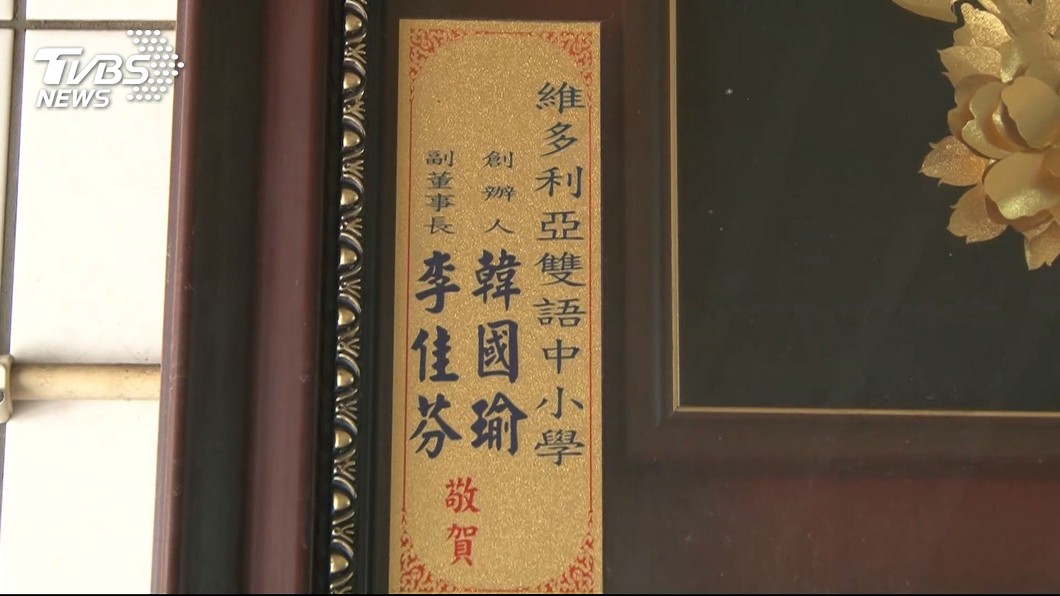 TVBS
NEWS
維多利亞雙語中小學
創辦人 韓國瑜
副董事長 李佳芬
敬賀